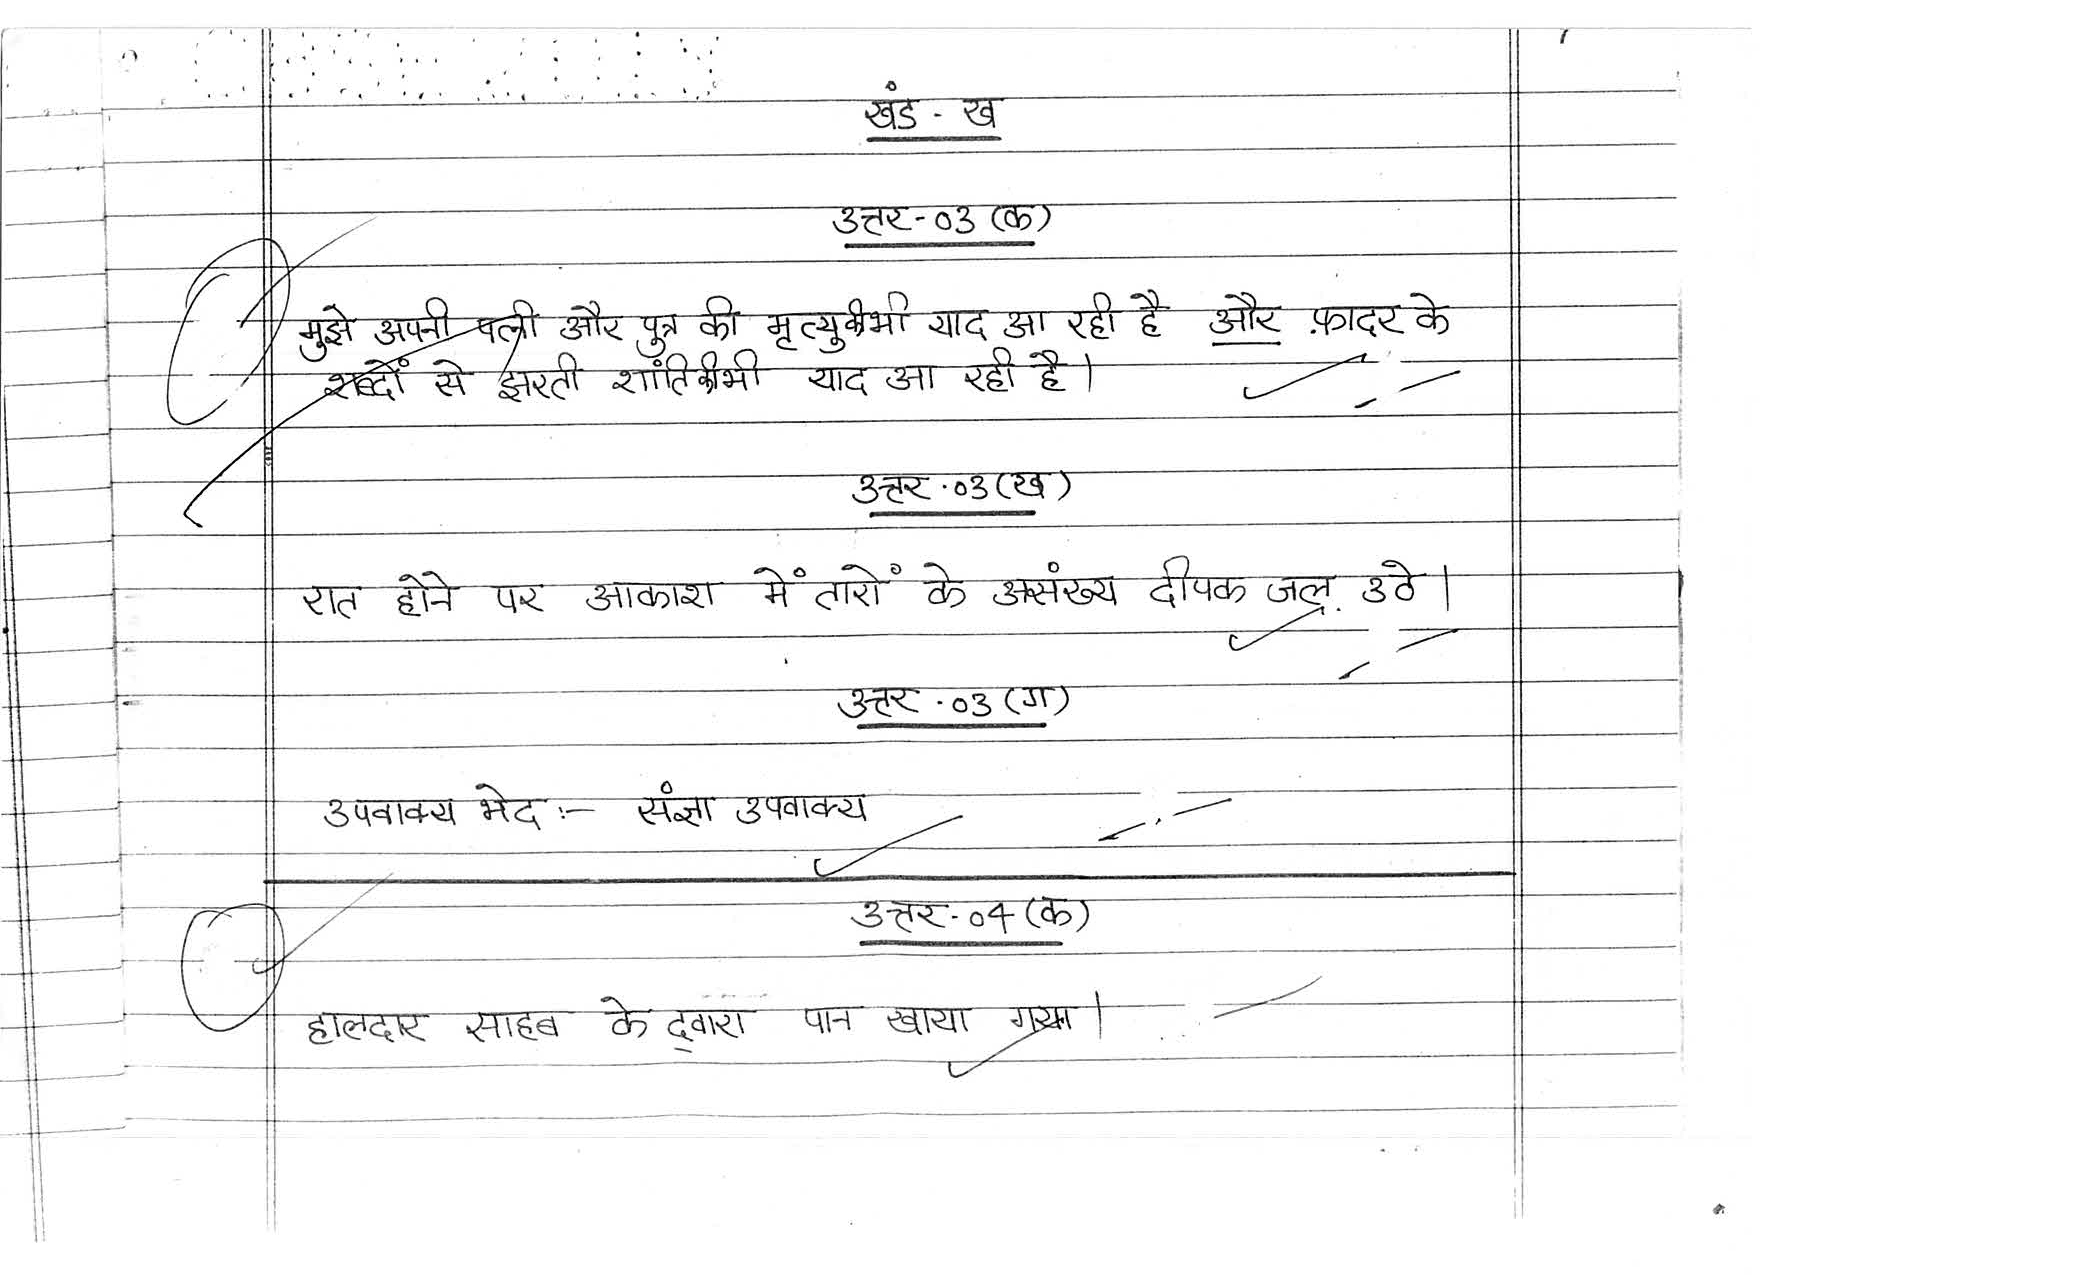 खंड - ख
उत्तर-03 (क)
मुझे अपनी पत्नी और पुत्र की मृत्यु की भी याद आ रही है और फ़ादर के
शब्दों से झरती शांति की भी याद आ रही है।
उत्तर-03 (ख)
रात होने पर आकाश में तारों के असंख्य दीपक जल उठे।
उत्तर-03 (ग)
उपवाक्य भेद :- संज्ञा उपवाक्य
उत्तर-04 (क)
हालदार साहब के द्वारा पान खाया गया।